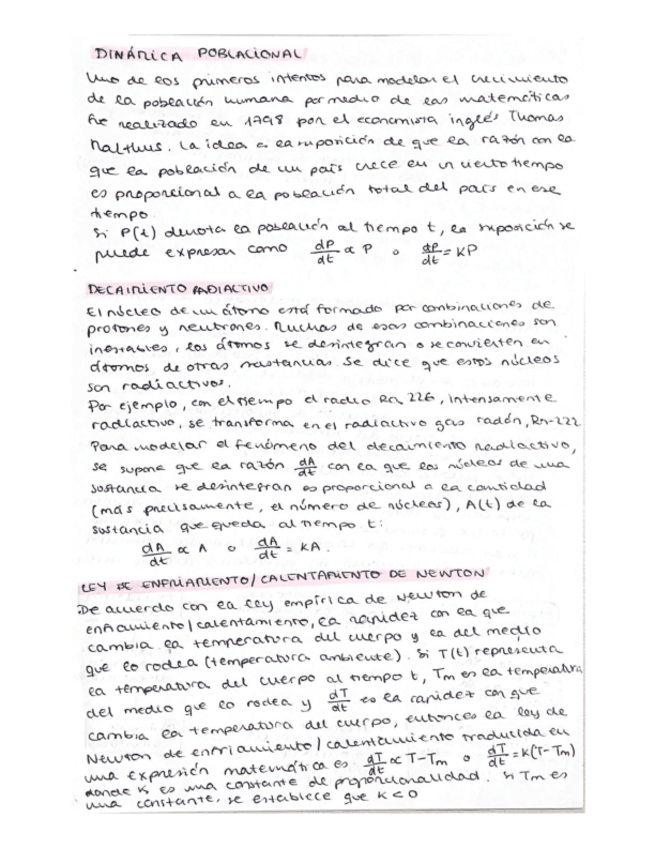 DINÁMICA POBLACIONAL
Uno de los primeros intentos para modelar el crecimiento
de la población humana por medio de las matemáticas
fue realizado en 1798 por el economista inglés Thomas
Malthus. La idea es la suposición de que la razón con la
que la población de un país crece en un cierto tiempo
es proporcional a la población total del país en ese
tiempo.
Si P(t) denota la población al tiempo t, la suposición se
puede expresar como dP/dt ∝ P o dP/dt = KP
DECAIMIENTO RADIACTIVO
El núcleo de un átomo está formado por combinaciones de
protones y neutrones. Muchas de esas combinaciones son
inestables, los átomos se desintegran o se convierten en
átomos de otras sustancias. Se dice que estos núcleos
son radiactivos.
Por ejemplo, con el tiempo el radio Ra 226, intensamente
radiactivo, se transforma en el radiactivo gas radón, Rn-222
Para modelar el fenómeno del decaimiento radiactivo,
se supone que la razón dA/dt con la que los núcleos de una
sustancia se desintegran es proporcional a la cantidad
(más precisamente, el número de núcleos), A(t) de la
sustancia que queda al tiempo t:
dA/dt ∝ A o dA/dt = KA.
LEY DE ENFRIAMIENTO/CALENTAMIENTO DE NEWTON
De acuerdo con la ley empírica de Newton de
enfriamiento/calentamiento, la rapidez con la que
cambia la temperatura del cuerpo y la del medio
que lo rodea (temperatura ambiente). Si T(t) representa
la temperatura del cuerpo al tiempo t, Tm es la temperatura
del medio que lo rodea y dT/dt es la rapidez con que
cambia la temperatura del cuerpo, entonces la ley de
Newton de enfriamiento/calentamiento traducida en
una expresión matemática es dT/dt ∝ T-Tm o dT/dt = K(T-Tm)
donde K es una constante de proporcionalidad. Si Tm es
una constante, se establece que K<0